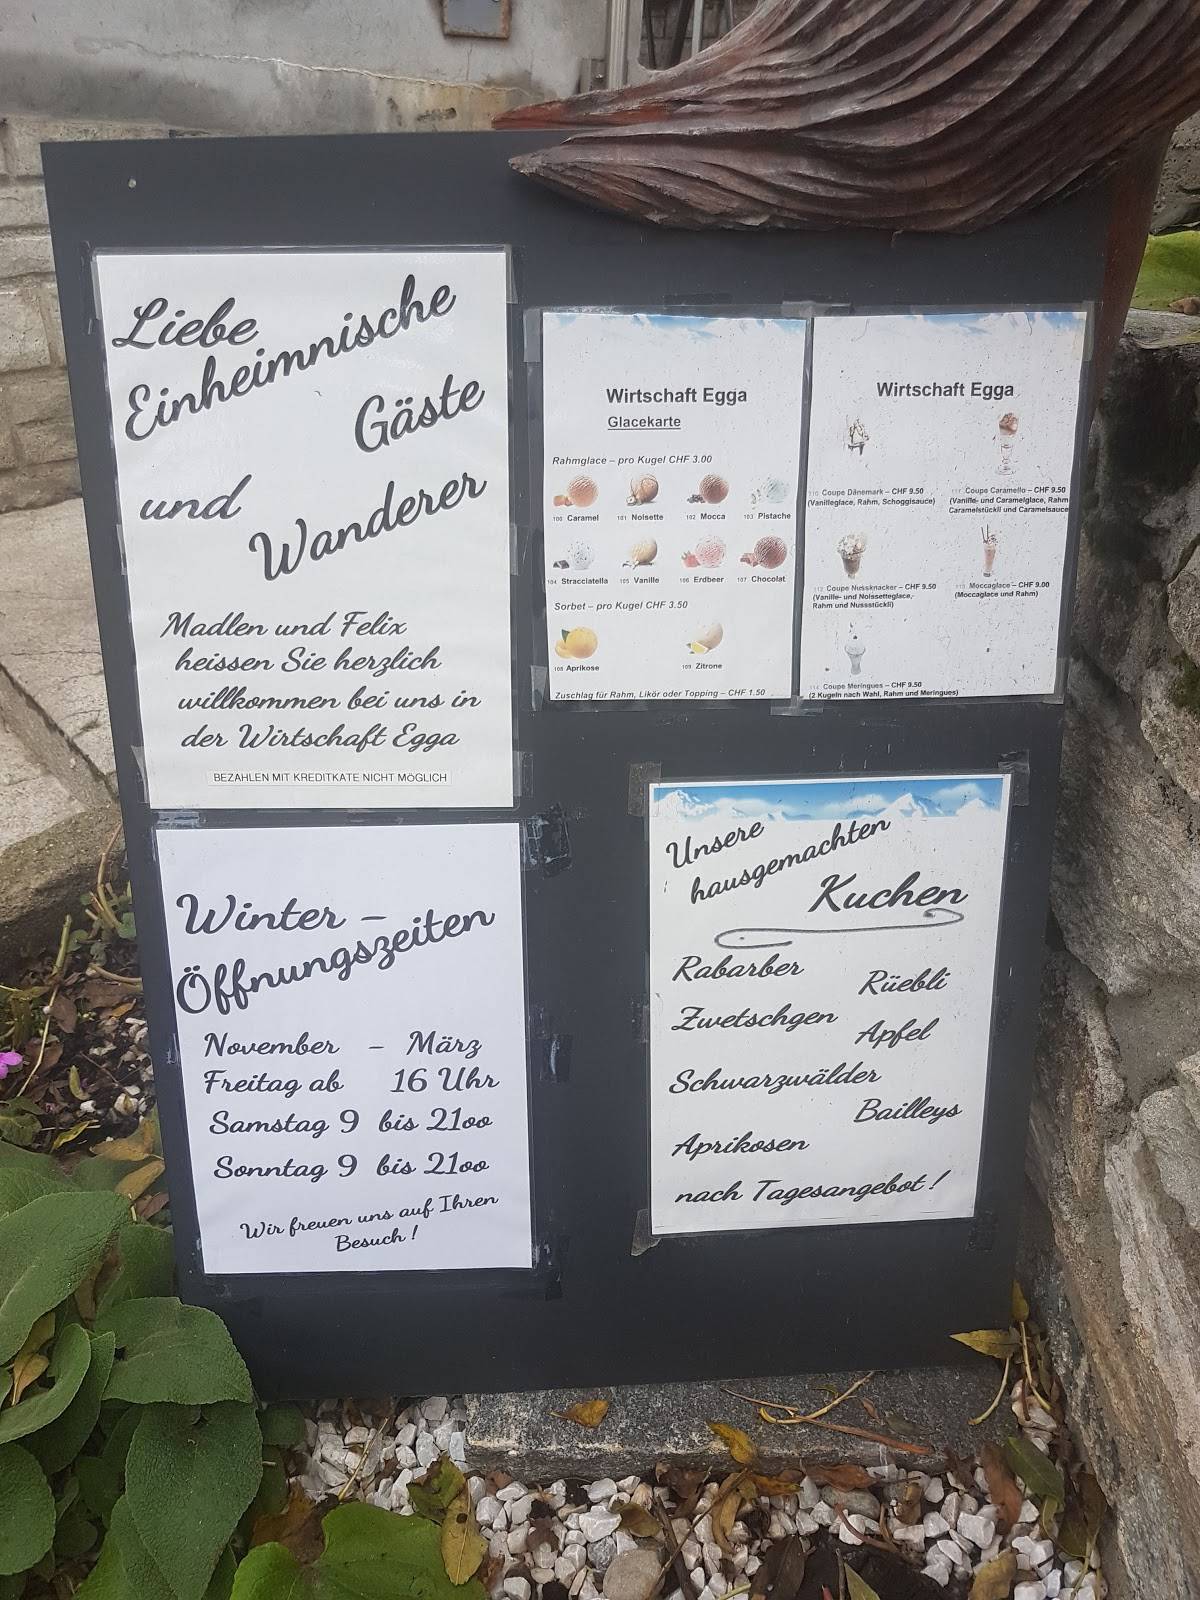 Liebe
Einheimnische
Gäste
und
Wanderer
Madlen und Felix
heissen Sie herzlich
willkommen bei uns in
der Wirtschaft Egga
BEZAHLEN MIT KREDITKATE NICHT MÖGLICH
Winter -
Öffnungszeiten
November - März
Freitag ab 16 Uhr
Samstag 9 bis 21oo
Sonntag 9 bis 21oo
Wir freuen uns auf Ihren
Besuch !
Wirtschaft Egga
Glacekarte
Rahmglace – pro Kugel CHF 3.00
100 Caramel 101 Noisette 102 Mocca 103 Pistache
104 Stracciatella 105 Vanille 106 Erdbeer 107 Chocolat
Sorbet – pro Kugel CHF 3.50
108 Aprikose 109 Zitrone
Zuschlag für Rahm, Likör oder Topping – CHF 1.50
Wirtschaft Egga
110 Coupe Dänemark – CHF 9.50
(Vanilleglace, Rahm, Schoggisauce)
111 Coupe Caramello – CHF 9.50
(Vanille- und Caramelglace, Rahm
Caramelstückli und Caramelsauce
112 Coupe Nussknacker – CHF 9.50
(Vanille- und Noissetteglace,
Rahm und Nussstückli)
113 Moccaglace – CHF 9.00
(Moccaglace und Rahm)
114 Coupe Meringues – CHF 9.50
(2 Kugeln nach Wahl, Rahm und Meringues)
Unsere
hausgemachten
Kuchen
Rabarber
Rüebli
Zwetschgen
Apfel
Schwarzwälder
Bailleys
Aprikosen
nach Tagesangebot !